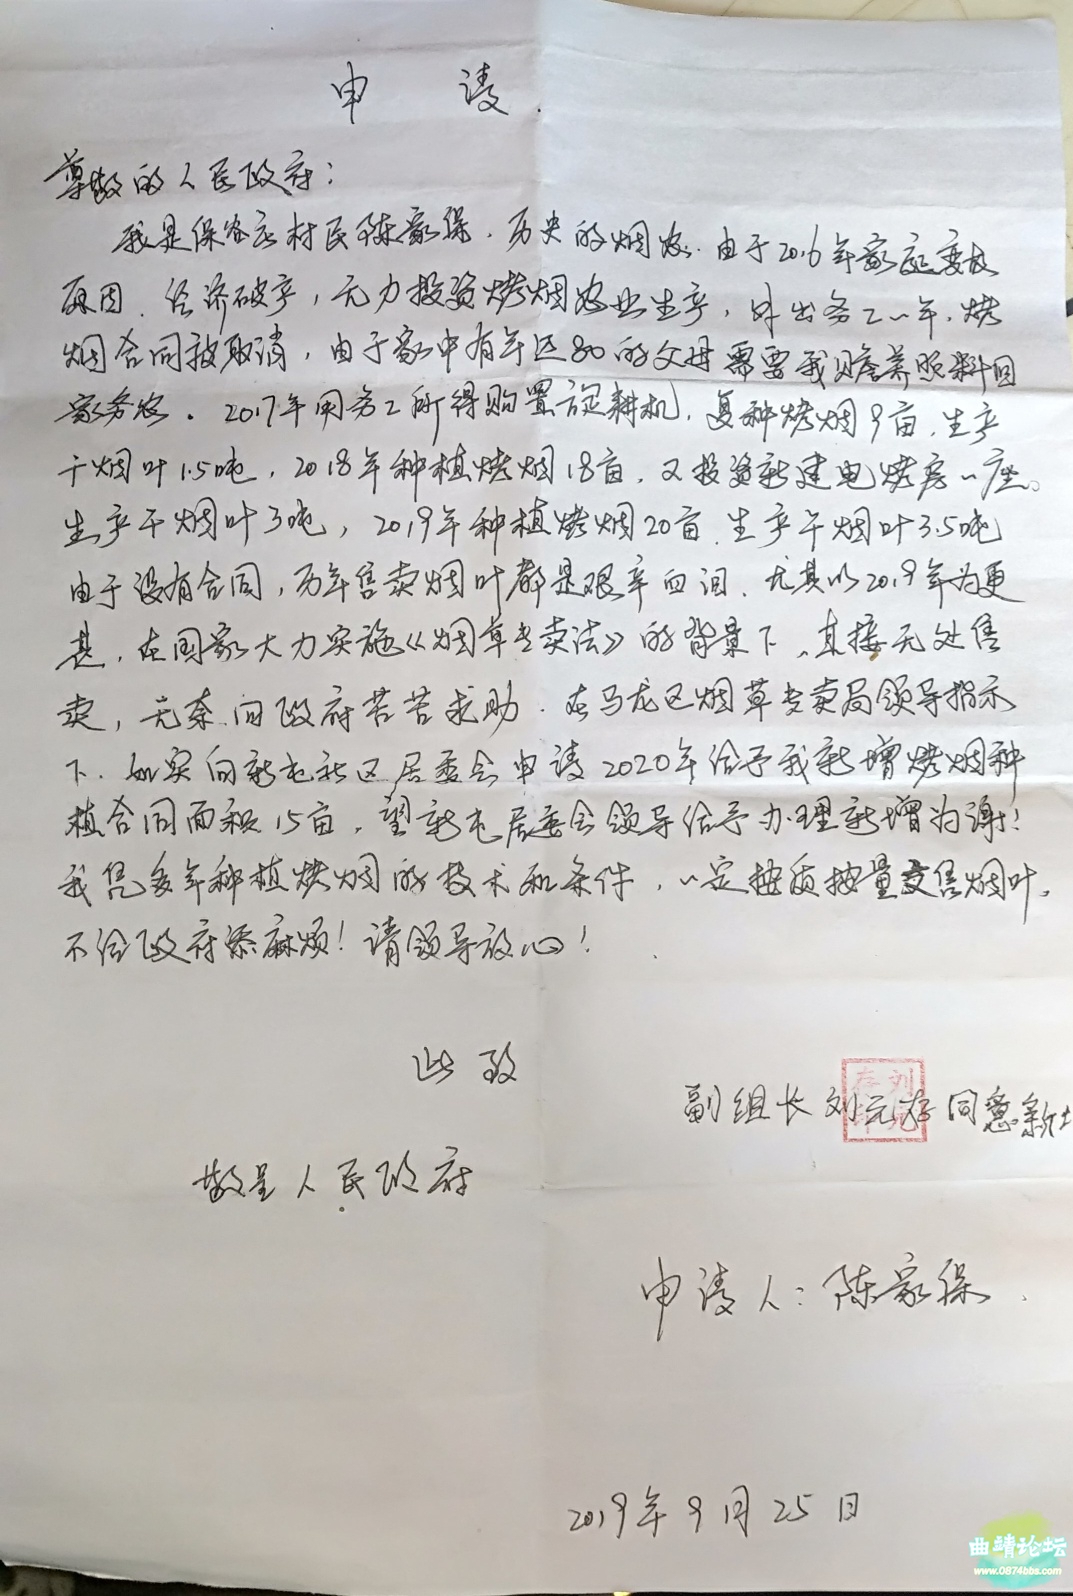 申 请
尊敬的人民政府：
我是保谷庄村民陈家保，历史的烟农，由于2016年家庭变故
原因，经济破产，无力投资烤烟农业生产，外出务工一年，烤
烟合同被取消，由于家中有年迈80的父母需要我赡养照料回
家务农。2017年用务工所得购置旋耕机，复种烤烟9亩，生产
干烟叶1.5吨，2018年种植烤烟18亩，又投资新建电烤房一座。
生产干烟叶3吨，2019年种植烤烟20亩，生产干烟叶3.5吨
由于没有合同，历年售卖烟叶都是艰辛血泪，尤其以2019年为更
甚，在国家大力实施《烟草专卖法》的背景下，直接无处售
卖，无奈向政府苦苦求助，在马龙区烟草专卖局领导指示
下，如实向新屯社区居委会申请2020年给予我新增烤烟种
植合同面积15亩，望新屯居委会领导给予办理新增为谢！
我凭多年种植烤烟的技术和条件，一定按质按量交售烟叶，
不给政府添麻烦！请领导放心！
此致
副组长刘元存同意新
刘元存印
敬呈人民政府
申请人：陈家保
2019年9月25日
曲靖论坛
www.0874bbs.com